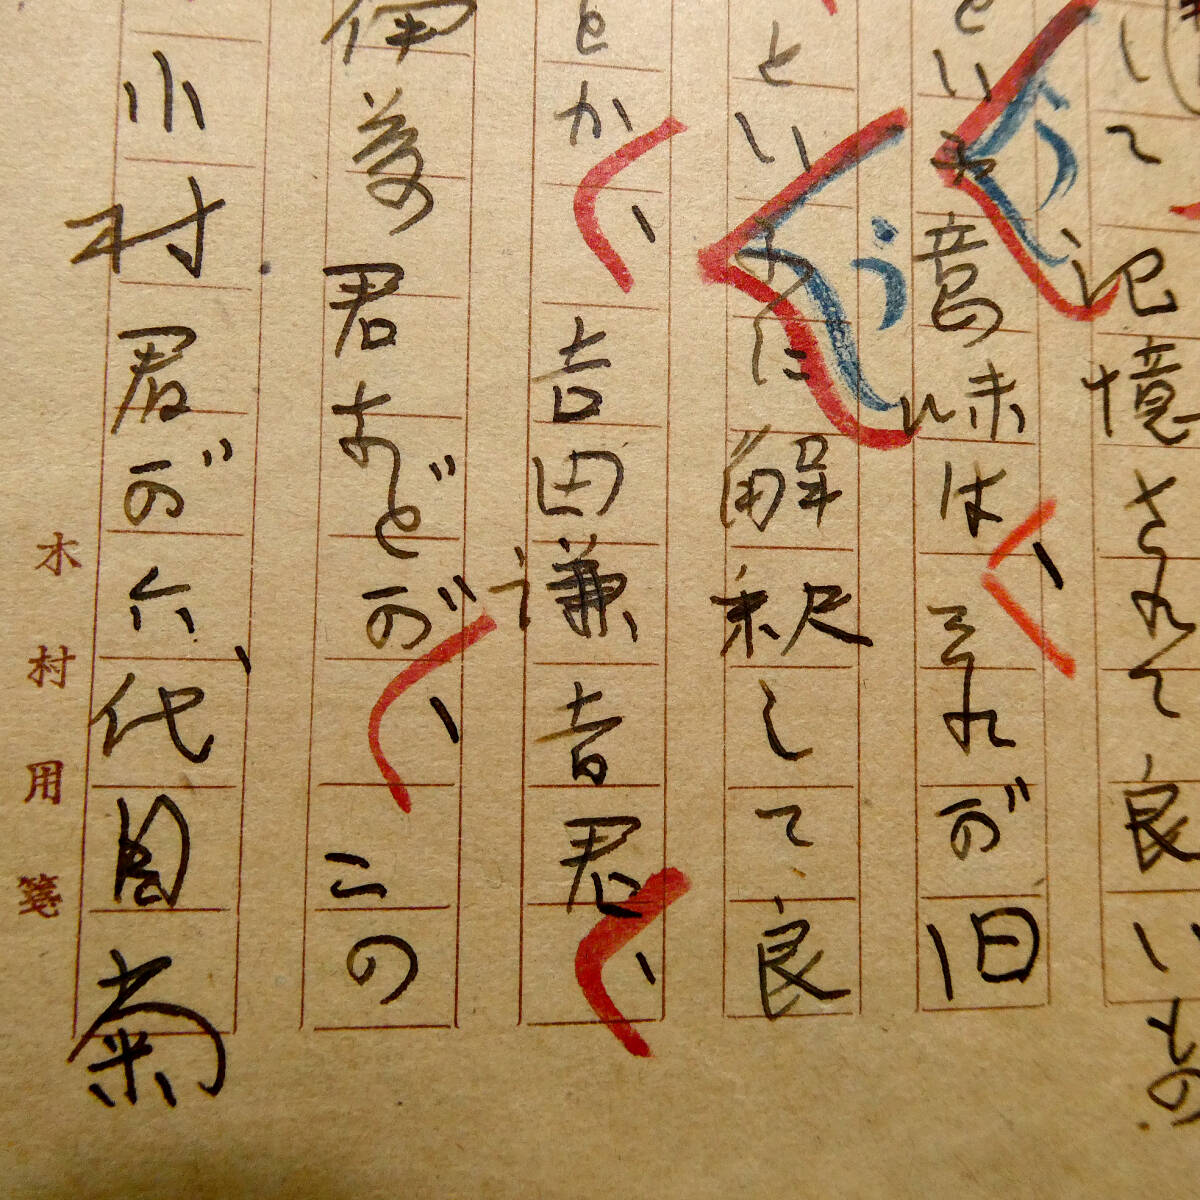 いて、記憶されて良いもの
といふ意味は、それが旧
といふように解釈して、良
とか、吉田謙吉君、
君などが、この
小村君が六、代目菊
木村用箋